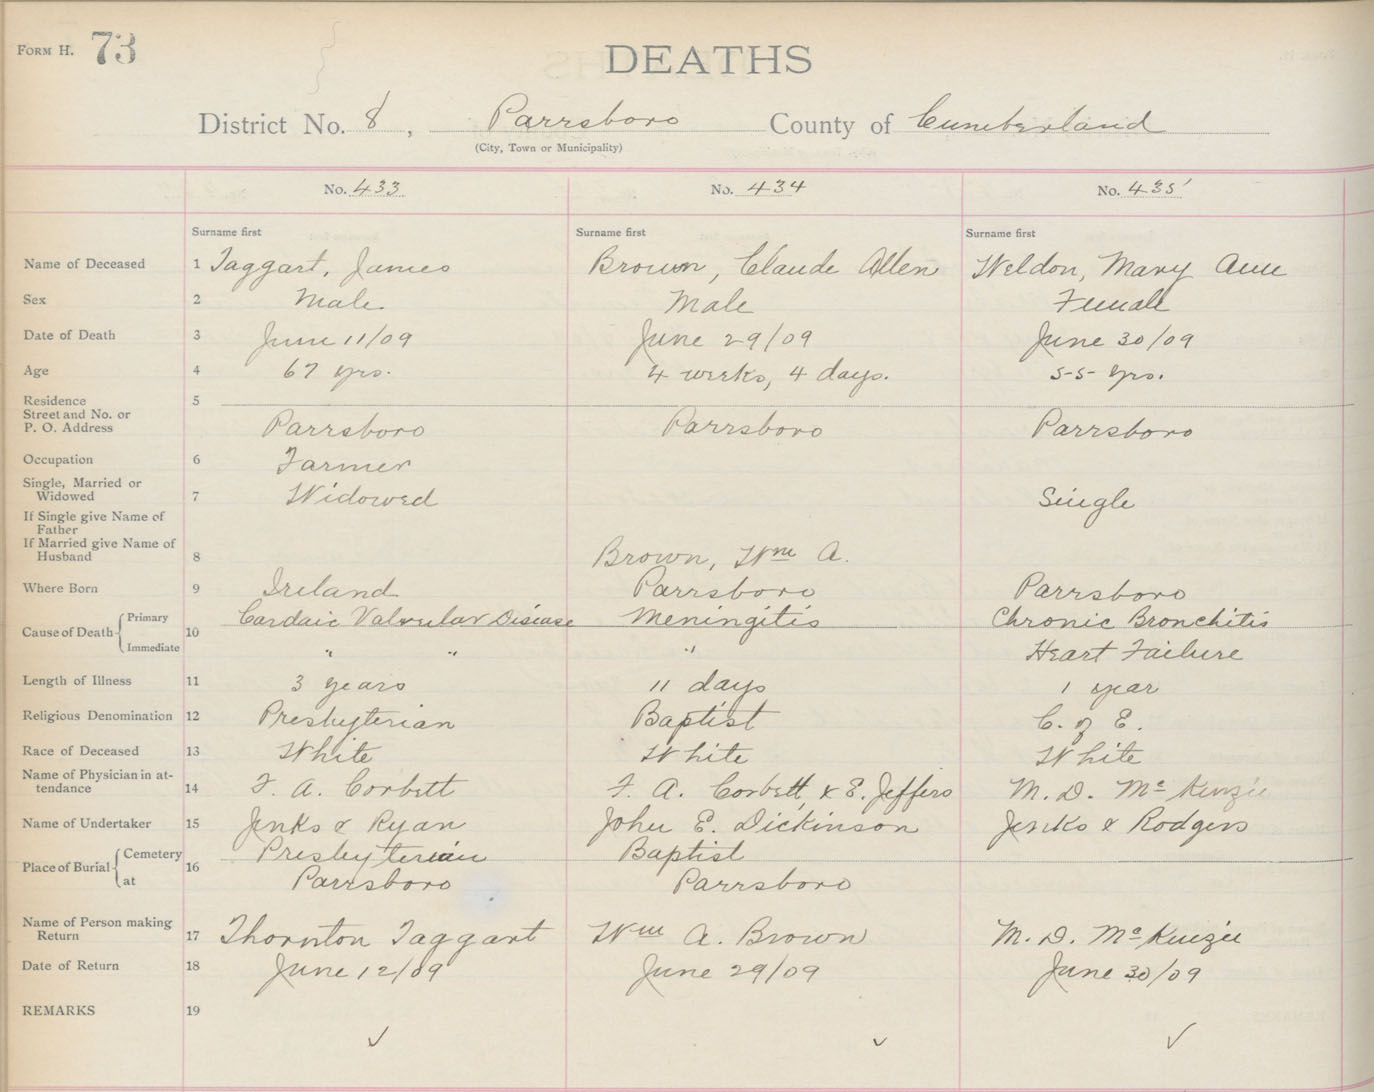 FORM H. 73
DEATHS
District No. 8, Parrsboro County of Cumberland
(City, Town or Municipality)
No. 433 No. 434 No. 435
Surname first Surname first Surname first
Name of Deceased 1 Taggart, James Brown, Claude Allen Weldon, Mary Ann
Sex 2 Male Male Female
Date of Death 3 June 11/09 June 29/09 June 30/09
Age 4 67 yrs. 4 weeks, 4 days. 55 yrs.
Residence 5
Street and No. or
P. O. Address Parrsboro Parrsboro Parrsboro
Occupation 6 Farmer
Single, Married or
Widowed 7 Widowed Single
If Single give Name of
Father
If Married give Name of
Husband 8 Brown, Wm A.
Where Born 9 Ireland Parrsboro Parrsboro
Cause of Death 10 Primary Cardaic Valvular Disease Meningitis Chronic Bronchitis
Immediate " " " Heart Failure
Length of Illness 11 3 years 11 days 1 year
Religious Denomination 12 Presbyterian Baptist C. of E.
Race of Deceased 13 White White White
Name of Physician in at-
tendance 14 F. A. Corbett F. A. Corbett & E. Jeffers M. D. McKenzie
Name of Undertaker 15 Jenks & Ryan John E. Dickinson Jenks & Rodgers
Place of Burial 16 Cemetery Presbyterian Baptist
at Parrsboro Parrsboro
Name of Person making
Return 17 Thornton Taggart Wm A. Brown M. D. McKenzie
Date of Return 18 June 12/09 June 29/09 June 30/09
REMARKS 19
✓ ✓ ✓